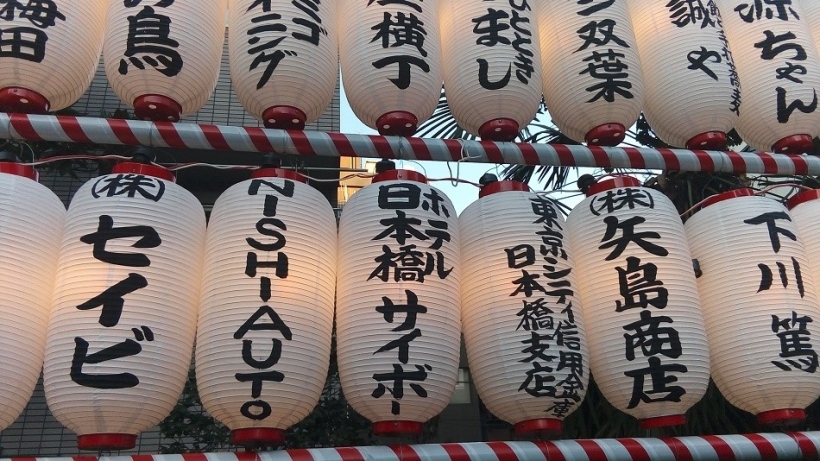 梅田
鳥
ミゴ
イニング
横丁
ひととき
まし
双葉
誠や
源ちゃん
(株)セイビ
NISHIAUTO
ホテル
日本橋サイボー
東京シティ信用金庫
日本橋支店
(株)矢島商店
下川 篤